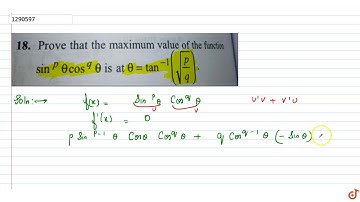 1290597
18. Prove that the maximum value of the function
sin^p θ cos^q θ is at θ = tan^-1 (√(p/q)).
Soln:→ f(x) = Sin^p θ Cos^q θ u'v + v'u
u v
f'(x) = 0
p Sin^p-1 θ Cosθ Cos^q θ + q Cos^q-1 θ (- Sinθ)